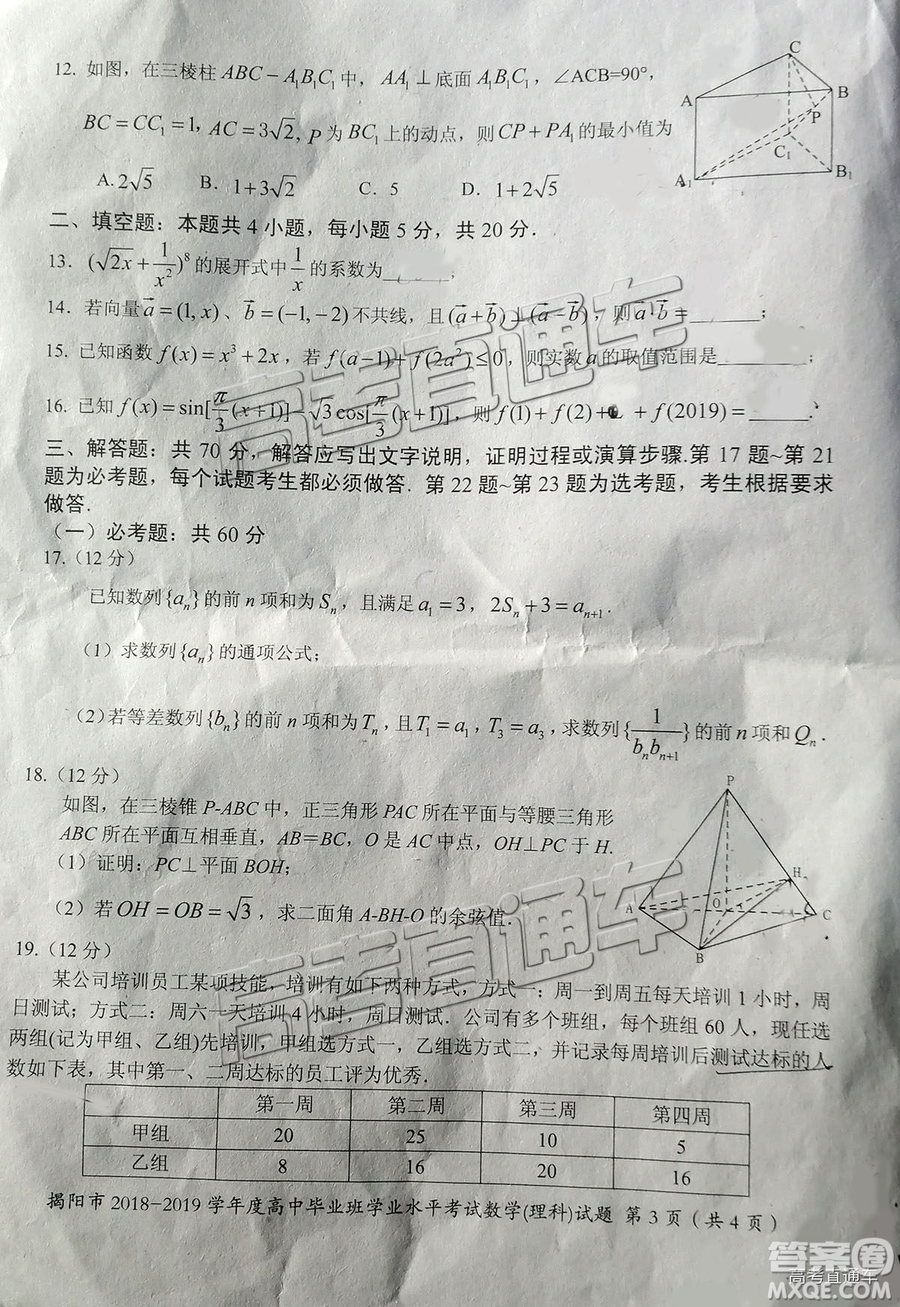 12. 如图，在三棱柱 ABC－A₁B₁C₁ 中，AA₁⊥底面 A₁B₁C₁，∠ACB=90°，
BC＝CC₁＝1，AC＝3√2，P 为 BC₁ 上的动点，则 CP＋PA₁ 的最小值为
A.2√5 B. 1+3√2 C. 5 D. 1+2√5
C
A
B
P
C₁
A₁
B₁
二、填空题：本题共 4 小题，每小题 5 分，共 20 分．
13. (√2x + 1/x²)⁸ 的展开式中 1/x 的系数为____；
14. 若向量 a⃗ = (1, x)、b⃗ = (−1,−2) 不共线，且 (a⃗+b⃗)⊥(a⃗−b⃗)，则 a⃗·b⃗ = ____；
15. 已知函数 f(x) = x³ + 2x，若 f(a−1)+ f(2a²) ≤ 0，则实数 a 的取值范围是____；
16. 已知 f(x) = sin[π/3(x+1)]−√3cos[π/3(x+1)]，则 f(1)+ f(2)+ + f(2019) = ____．
三、解答题：共 70 分，解答应写出文字说明，证明过程或演算步骤.第 17 题~第 21
题为必考题，每个试题考生都必须做答. 第 22 题~第 23 题为选考题，考生根据要求
做答.
（一）必考题：共 60 分
17.（12 分）
已知数列{aₙ}的前 n 项和为 Sₙ，且满足 a₁ = 3，2Sₙ + 3 = aₙ₊₁．
（1）求数列{aₙ}的通项公式；
（2）若等差数列{bₙ}的前 n 项和为 Tₙ，且 T₁ = a₁，T₃ = a₃，求数列{1/(bₙbₙ₊₁)}的前 n 项和 Qₙ．
18.（12 分）
如图，在三棱锥 P-ABC 中，正三角形 PAC 所在平面与等腰三角形
ABC 所在平面互相垂直，AB＝BC，O 是 AC 中点，OH⊥PC 于 H.
（1）证明：PC⊥平面 BOH；
（2）若 OH = OB = √3，求二面角 A-BH-O 的余弦值.
P
H
A
O
C
B
19.（12 分）
某公司培训员工某项技能，培训有如下两种方式，方式一：周一到周五每天培训 1 小时，周
日测试；方式二：周六一天培训 4 小时，周日测试．公司有多个班组，每个班组 60 人，现任选
两组(记为甲组、乙组)先培训，甲组选方式一，乙组选方式二，并记录每周培训后测试达标的人
数如下表，其中第一、二周达标的员工评为优秀.
第一周 第二周 第三周 第四周
甲组 20 25 10 5
乙组 8 16 20 16
揭阳市 2018-2019 学年度高中毕业班学业水平考试数学(理科)试题 第 3 页（共 4 页）
高考直通车
高考直通车
答案圈
高考直通车
MXQE.COM